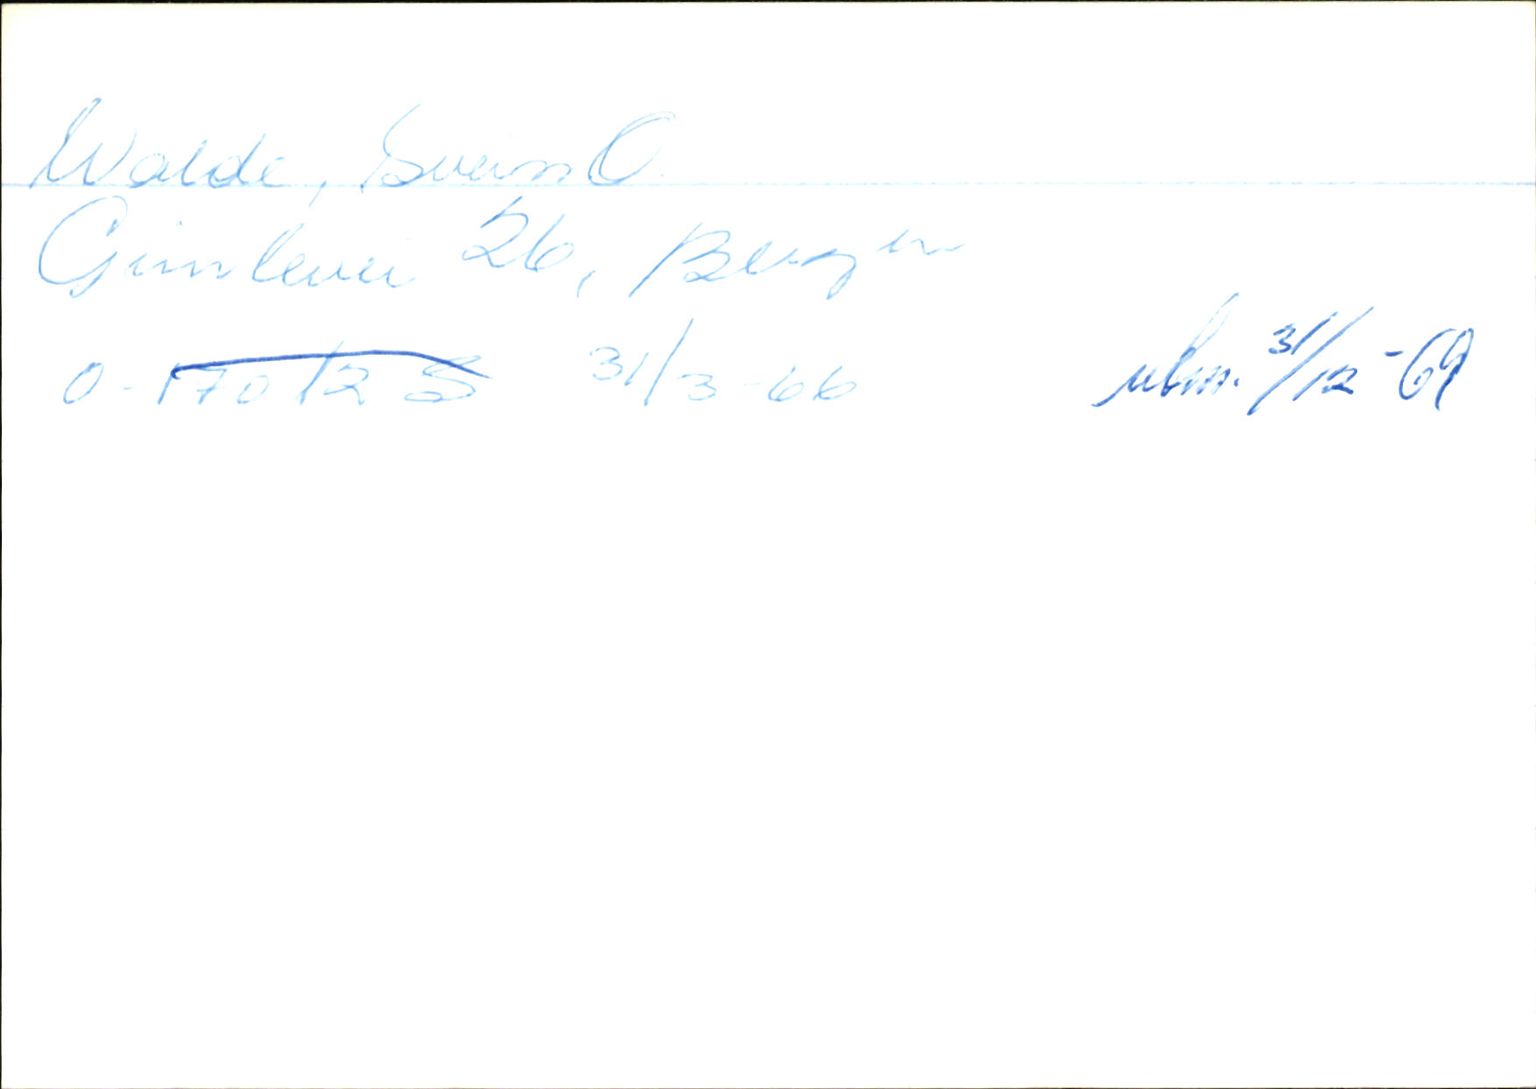 Walde, Svein O.
Gimlevei 26, Bergen
O-17012 S 31/3-66 ubm. 31/12-69